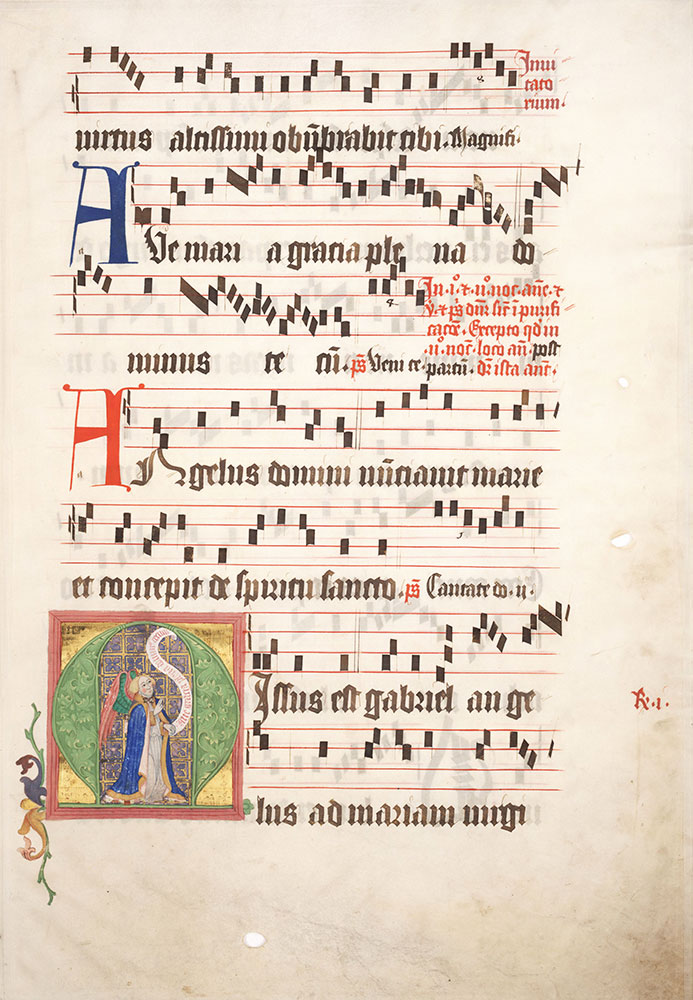 Inui
tato
rium.
uirtus altissimi obūbrabit tibi. Magnifi.
AVe mari a gracia ple na do
In .i°. ⁊ .ii°. noc. ant. ⁊
v̓. ⁊ ps̄ dn̄r sic̄ i purifi
catōe. Excepto qd in
minus te cū. ps̄ Veni te. .ii°. noct. loco añ. post
partum. dr̄ ista ant.
ANgelus domini nūciauit marie
et concepit de spiritu sancto. ps̄ Cantate do .ii.
MIssus est gabriel an ge
R̄. .i.
lus ad mariam uirgi